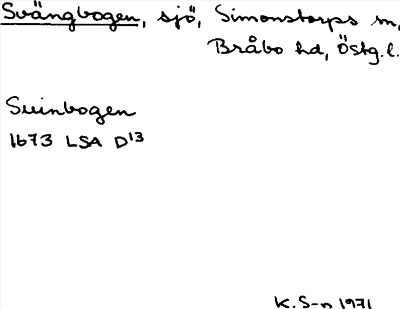 Svängbogen, sjö, Simonstorps sn,
Bråbo hd, Östg.l.
Suinbogen
1673 LSA D13
K.S-n 1971